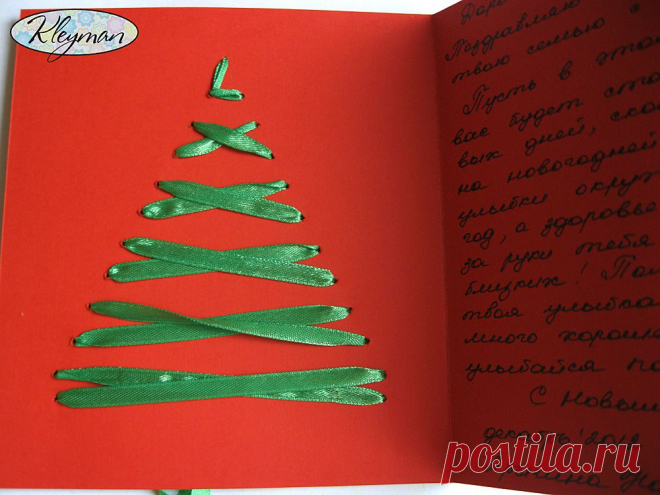 Kleyman
Поздравляю
твою семью с
Пусть в этом
вас будет сто
вых дней, ско
на новогодней
улыбки окруж
год, а здоровье
за руки тебя
близких! Пом
твоя улыбка
много хороше
улыбайся по
С Новым
postila.ru